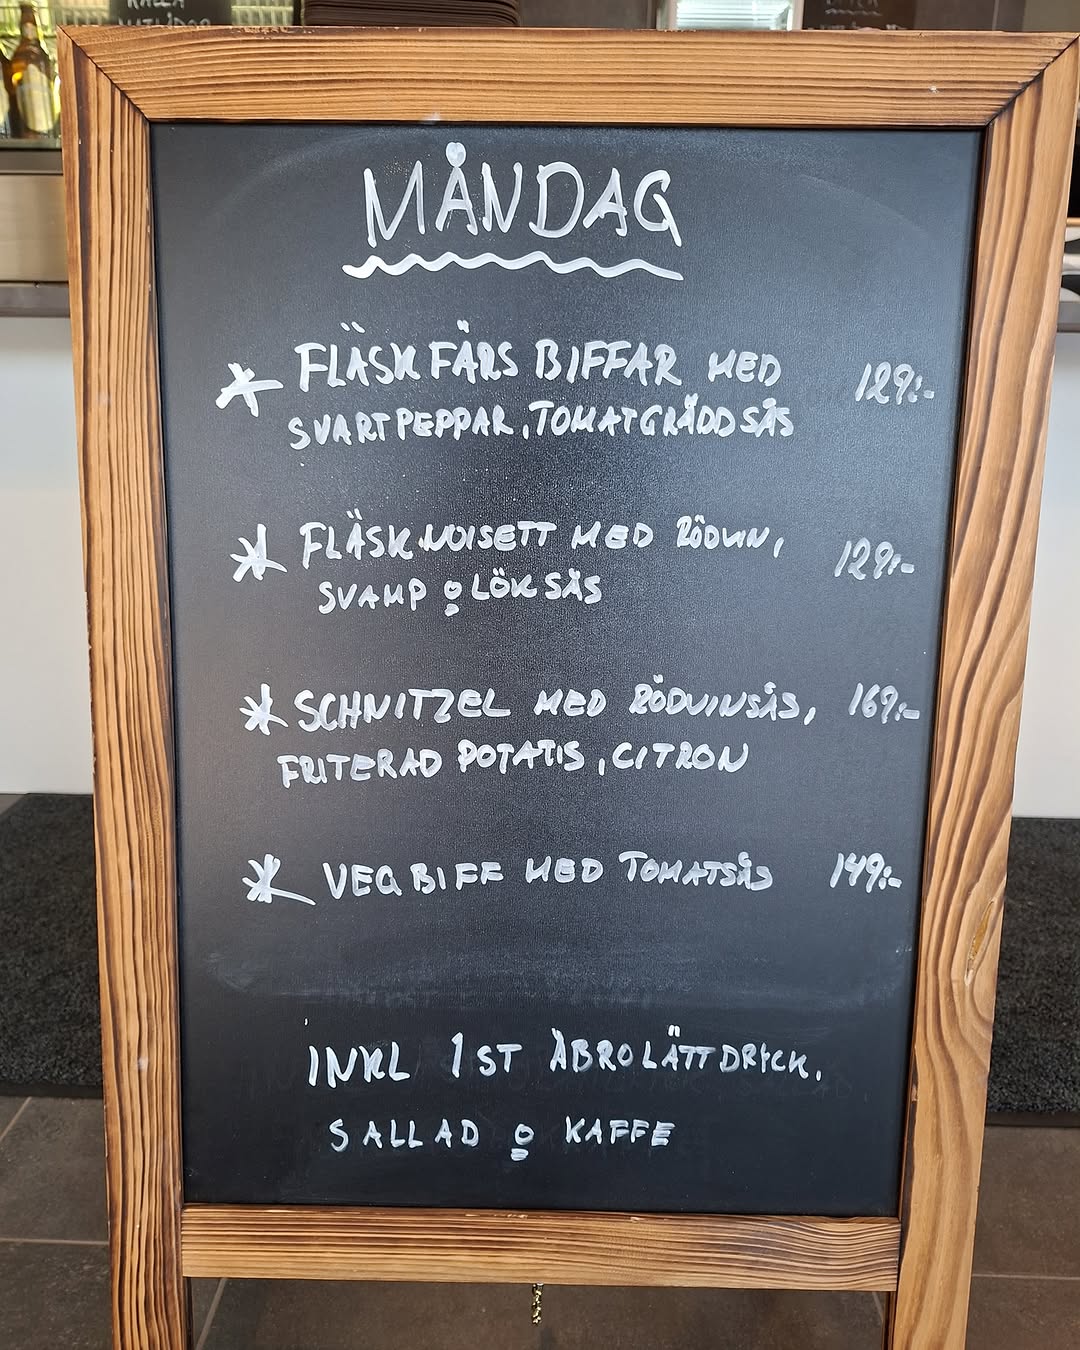 KALLA
MATLÅDOR
MÅNDAG
* FLÄSKFÄRS BIFFAR MED 129:-
SVARTPEPPAR, TOMATGRÄDDSÅS
* FLÄSKNOISETT MED RÖDVIN, 129:-
SVAMP o LÖKSÅS
* SCHNITZEL MED RÖDVINSÅS, 169:-
FRITERAD POTATIS, CITRON
* VEG BIFF MED TOMATSÅS 149:-
INKL 1ST ÅBRO LÄTTDRYCK,
SALLAD o KAFFE